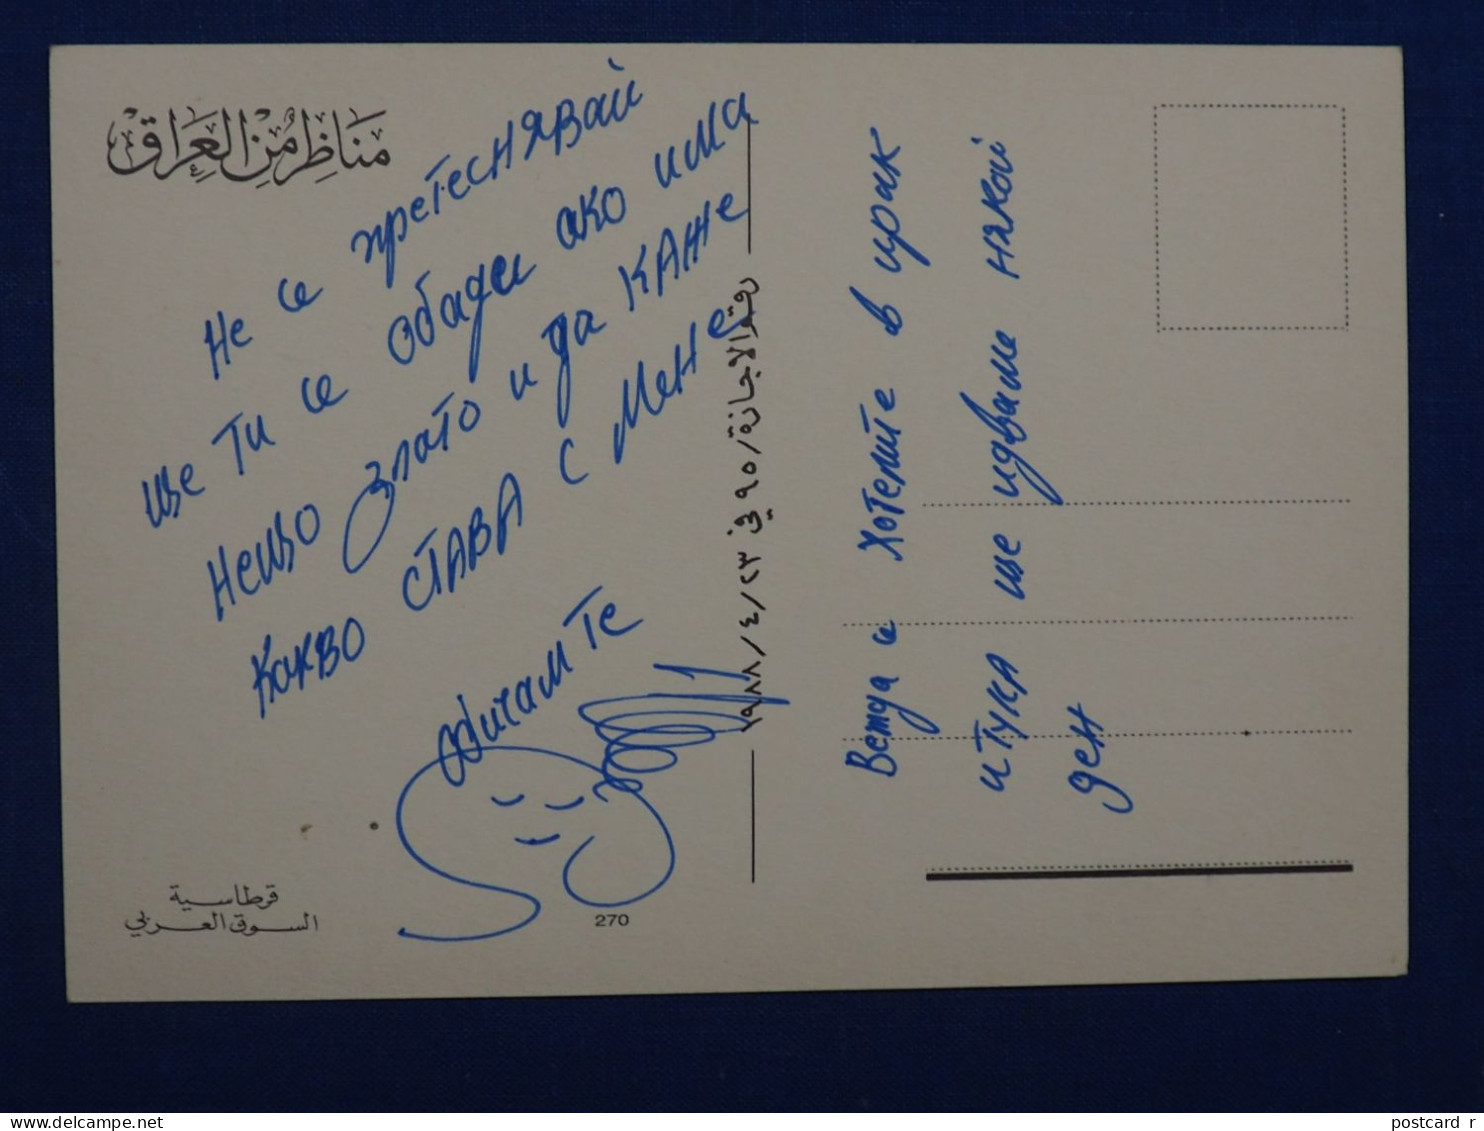 مناظر من العراق
Не се притеснявай
ще ти се обади ако има
нещо злато и да каже
какво става с мене
обичам те
رقم الاجازة/٩٥ في ٢٣/٤/١٩٨٨
хотелите в ирак
и тука ще идваме някой
ден
قرطاسية
السوق العربي
270
delcampe.net
postcard_r